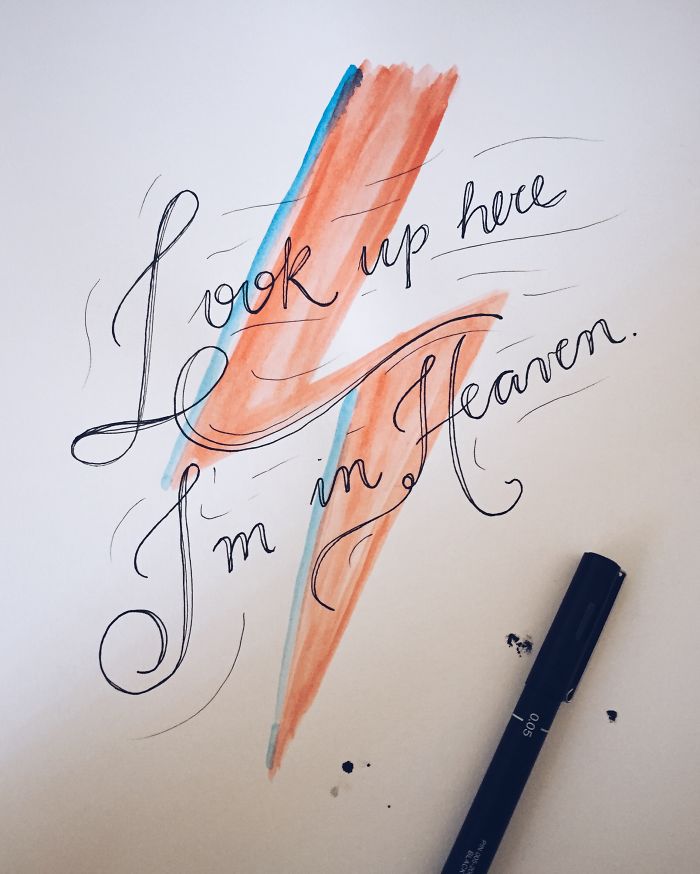 Look up here
I'm in Heaven.
0.05
PIN 005-200
BLACK